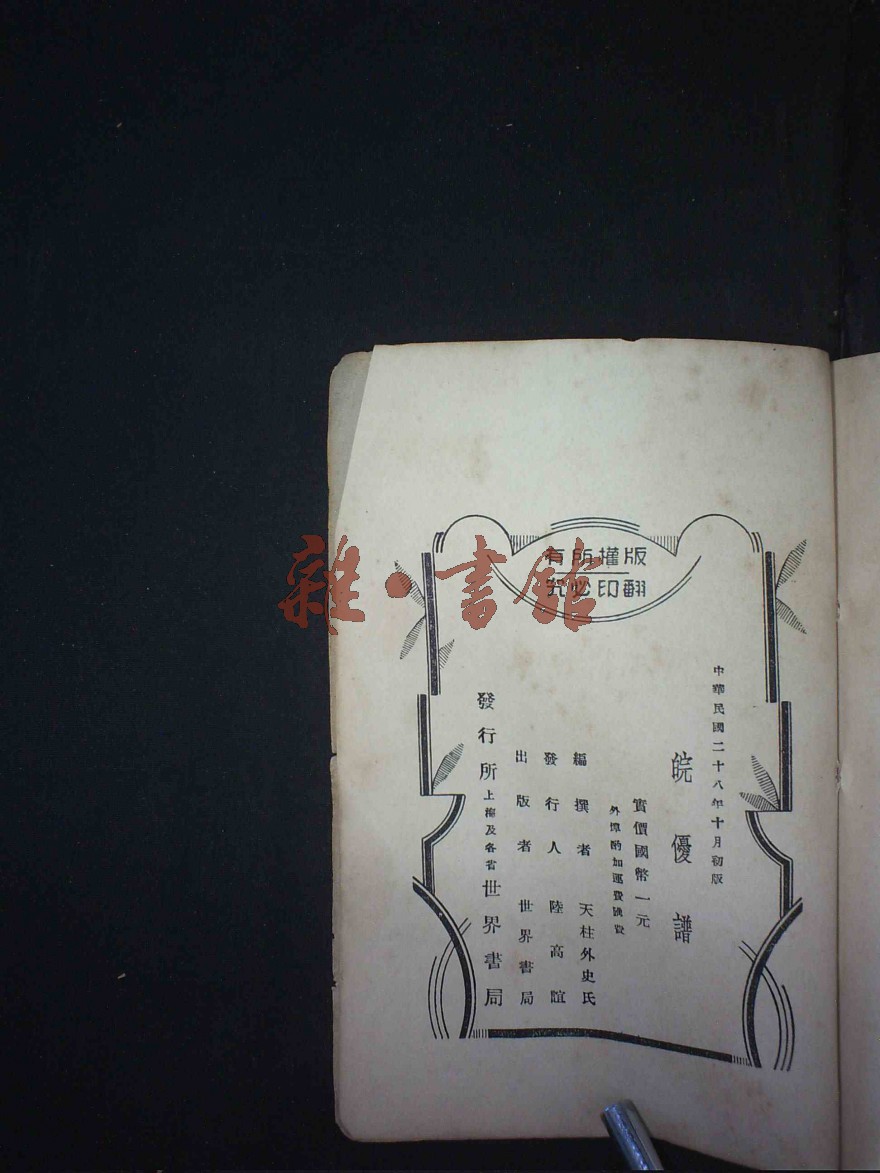 雜·書館
版權所有
翻印必究
中華民國二十八年十月初版
皖優譜
實價國幣一元
外埠酌加運費匯費
編撰者 天柱外史氏
發行人 陸高誼
出版者 世界書局
發行所 上海及各省 世界書局